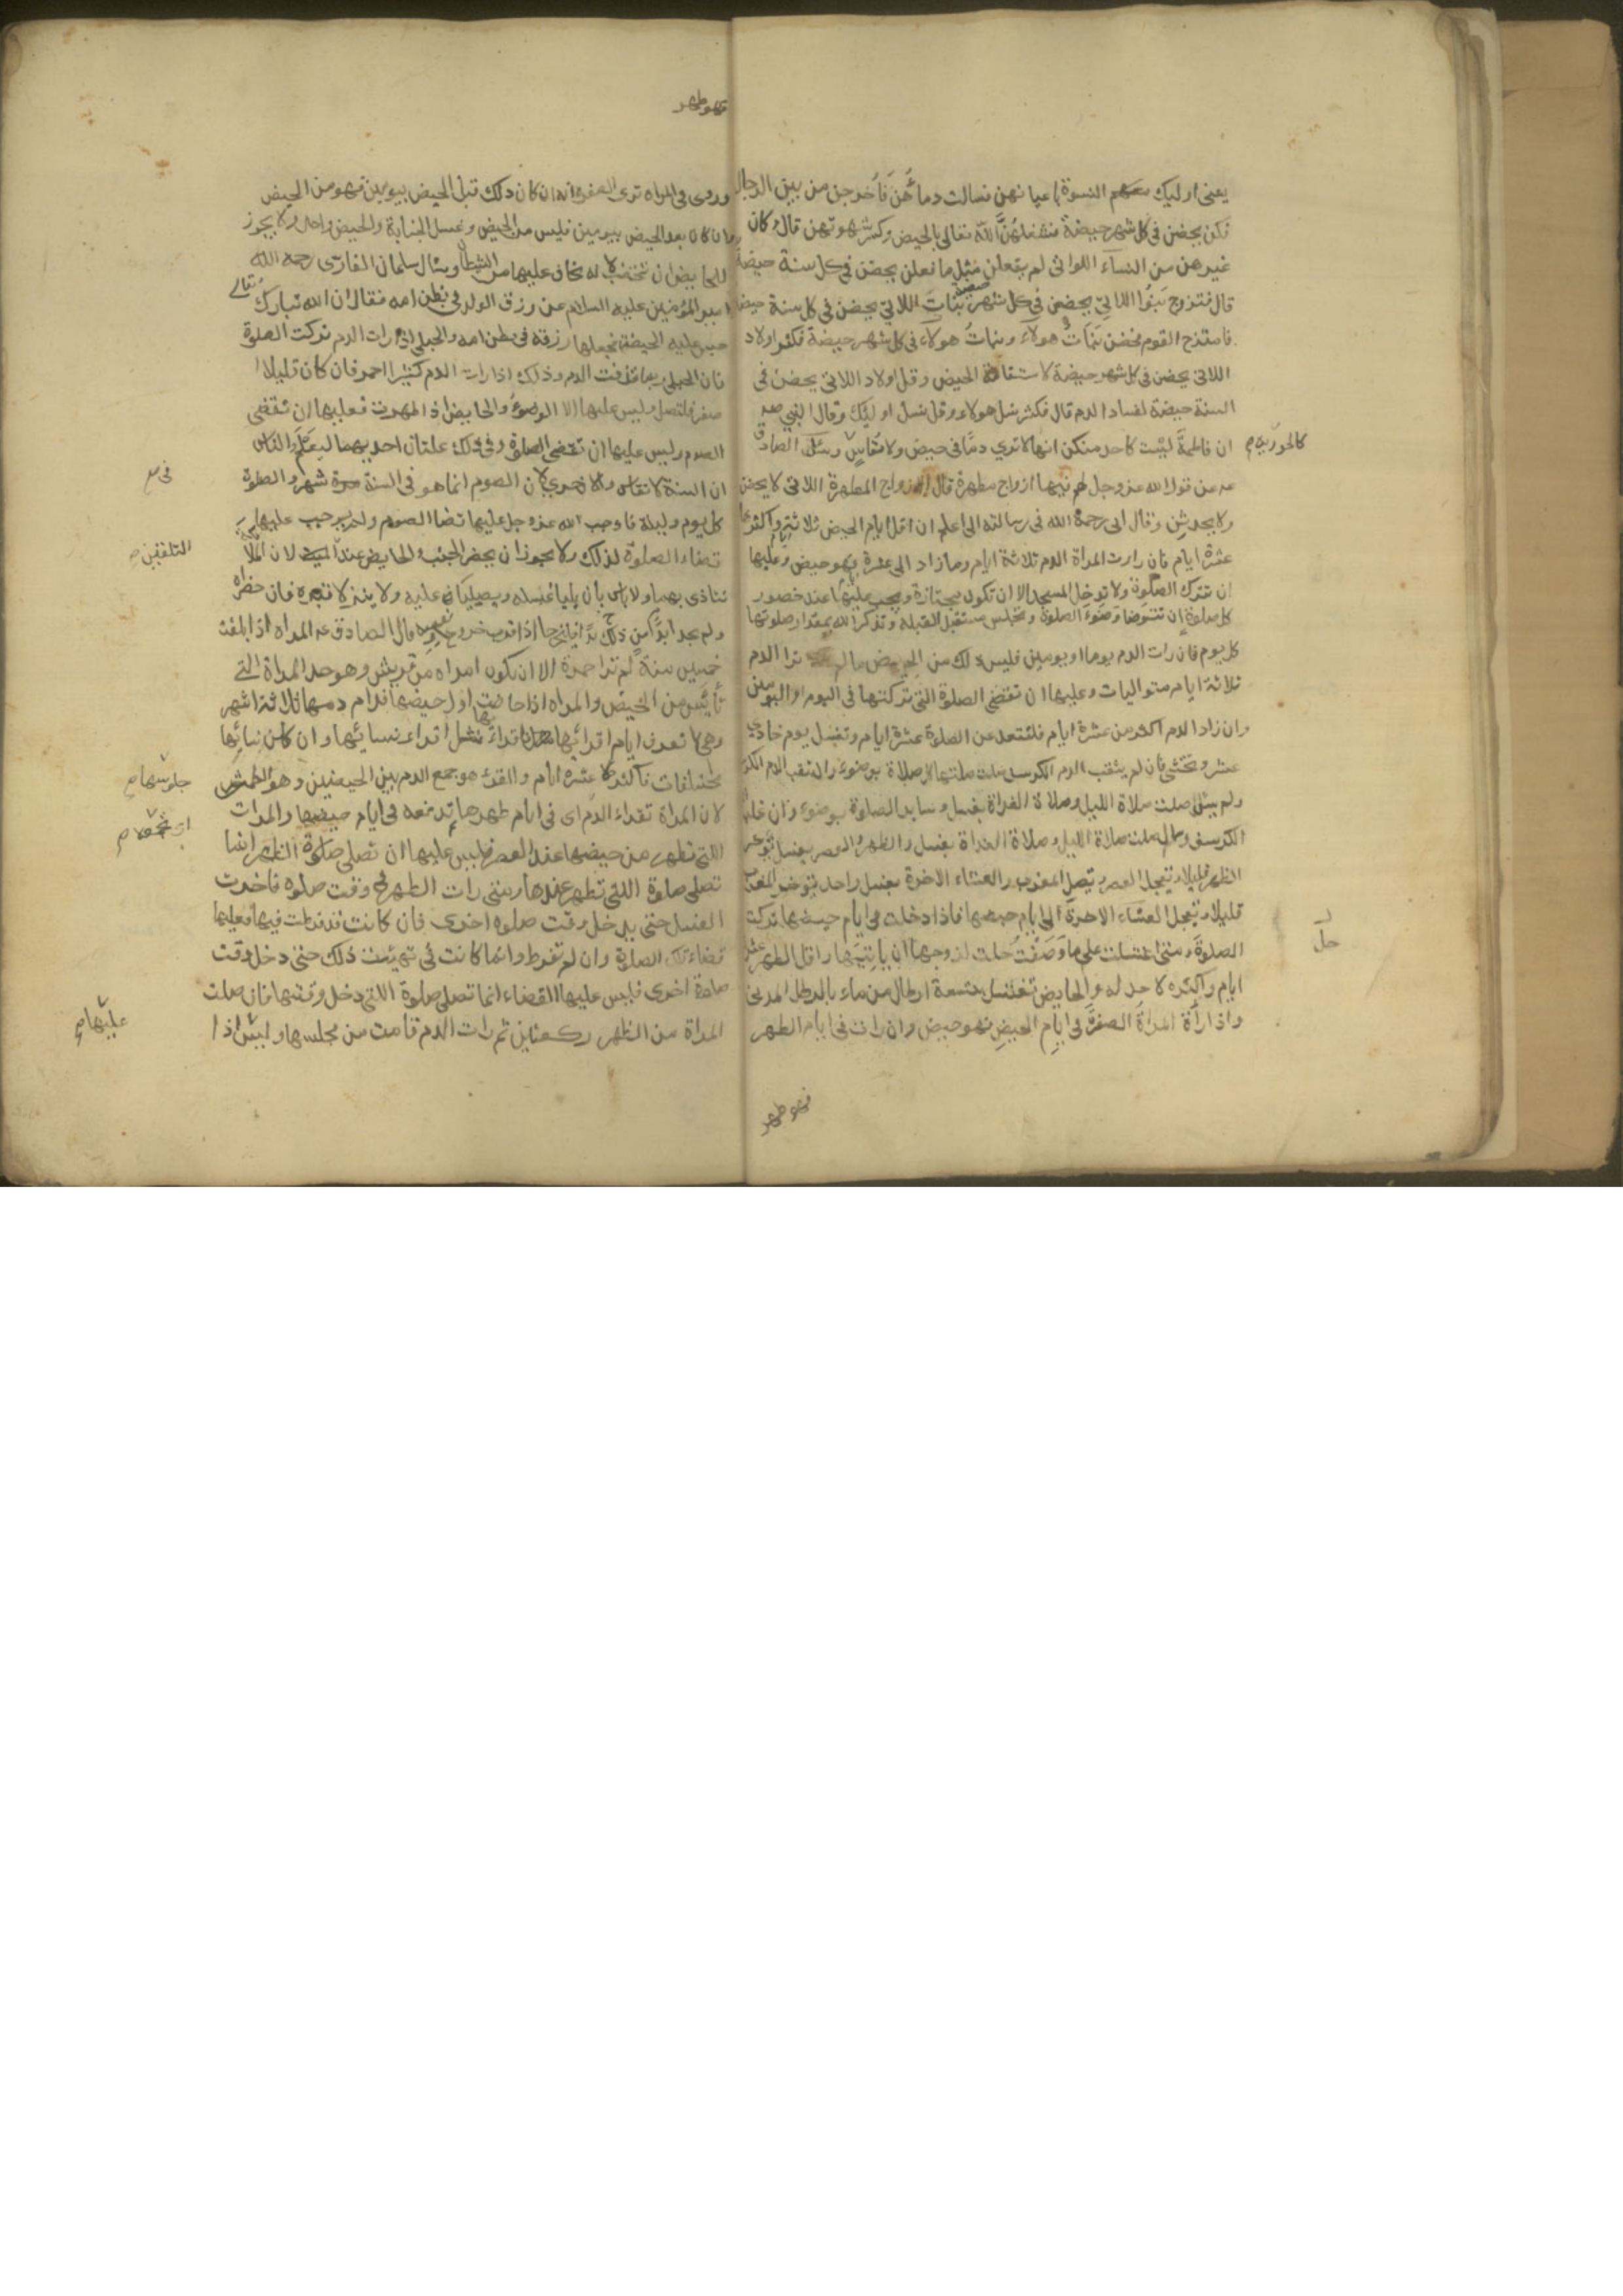 يعنى اوليك النسوة باعيانهن فسالت دمائهن فاخرجن من بين الرجال
فكن يحضن فى كل شهر حيضة فشغلهن الله تعالى بالحيض وكسر شهوتهن قال وكان
غيرهن من النساء اللواتى لم يفعلن مثل ما فعلن يحضن فى كل سنة حيضة
قال فتزوج بنوا اللاتى يحضن فى كل شهر حيضة بنات اللاتى يحضن فى كل سنة حيضة
فامتزج القوم فحضن بنات هولاء وبنات هولاء فى كل شهر حيضة فكثر اولاد
اللاتى يحضن فى كل شهر حيضة لاستقامة الحيض وقل اولاد اللاتى يحضن فى
السنة حيضة لفساد الدم قال فكثر نسل هولاء وقل نسل اوليك وقال النبى صه
ان فاطمة ليست كاحد منكن انها لا ترى دما فى حيض ولا نفاس وسئل الصادق
كالحورية
عه عن قول الله عز وجل لهم فيها ازواج مطهرة قال الازواج المطهرة اللاتى لا يحضن
ولا يحدثن وقال ابى رحمة الله فى رسالته الى اعلم ان اقل ايام الحيض ثلاثة ايام واكثرها
عشرة ايام فان رات المراة الدم ثلاثة ايام وما زاد الى عشرة فهو حيض وعليها
ان تترك الصلوة ولا تدخل المسجد الا ان تكون مجتازة ويجب عليها عند حضور
كل صلوة ان تتوضا وضوء الصلوة وتجلس مستقبل القبله وتذكر الله بمقدار صلوتها
كل يوم فان رات الدم يوما او يومين فليس ذلك من الحيض ما لم ترا الدم
ثلاثة ايام متواليات وعليها ان تقضى الصلوة التى تركتها فى اليوم او اليومين
وان زاد الدم اكثر من عشرة ايام فلتقعد عن الصلوة عشرة ايام وتغتسل يوم حادى
عشر وتحتشى فان لم يثقب الدم الكرسف صلت صلتها كل صلاة بوضوء وان ثقب الدم الكرسف
ولم يسل صلت صلاة الليل وصلاة الغداة بغسل وساير الصلوة بوضوء وان غلب
الكرسف وسال صلت صلاة الليل وصلاة الغداة بغسل والظهر والعصر بغسل تؤخر
الظهر قليلا وتعجل العصر وتصل المغرب والعشاء الاخرة بغسل واحد تؤخر المغرب
قليلا وتعجل العشاء الاخرة الى ايام حيضها فاذا دخلت فى ايام حيضها تركت
الصلوة ومتى اغتسلت على ما وصفت حلت لزوجها ان ياتيها واقل الطهر عشرة
حل
ايام واكثره لا حد له والحايض تغتسل بتسعة ارطال من ماء بالرطل المدنى
واذا رأة المراة الصفرة فى ايام الحيض فهو حيض وان رات فى ايام الطهر
فهو طهر
فهو طهر
وروى فى المراه ترى الصفرة انه ان كان ذلك قبل الحيض بيومين فهو من الحيض
وان كان بعد الحيض بيومين فليس من الحيض وغسل الجنابة والحيض واحد ولا يجوز
للحايض ان تختضب لانه يخاف عليها من الشيطان وسال سلمان الفارسى رحمه الله
امير المؤمنين عليه السلام عن رزق الولد فى بطن امه فقال ان الله تبارك وتعالى
حبس عليه الحيضة فجعلها رزقه فى بطن امه والحبلى اذا رات الدم تركت الصلوة
فان الحبلى ربما قذفت الدم وذلك اذا رات الدم كثيرا احمر فان كان قليلا ا
صفر فلتصل وليس عليها الا الوضوء والحايض اذا طهرت فعليها ان تقضى
الصوم وليس عليها ان تقضى الصلوة وفى ذلك علتان احديهما ليعلم الناس
ان السنة لا تقاس والاخرى لان الصوم انما هو فى السنة شهر والصلوة
فى
كل يوم وليلة فاوجب الله عز وجل عليها قضا الصوم ولم يوجب عليها
قضاء الصلوة لذلك ولا يجوز ان يحضر الجنب والحايض عند لان الملائكة
التلقين
تتاذى بهما ولا باس بان يليا غسله ويصليا عليه ولا ينزلا قبره فان حضراه
ولم يجد ابدا من ذلك فليخرجا اذا قرب خروج نفسه قال الصادق عه المراه اذا بلغت
خمسين سنة لم تر احمرة الا ان تكون امراه من قريش وهو حد المراة التى
تأيس من الحيض والمراه اذا حاضت اول حيضها فدام دمها ثلاثة اشهر
وهى لا تعرف ايام اقرائها فاقراءها مثل اقراء نسائها وان كان نسائها
مختلفات فاكثر عشرة ايام والقرء هو جمع الدم بين الحيضتين وهو الطهر
جلوسها
لان المراة تقراء الدم اى فى ايام طهرها ثم تدفعه فى ايام حيضها والمراة
اى تجمع
اللتى تطهر من حيضها عند العصر فليس عليها ان تصلى صلوة الظهر انما
تصلى صلوة اللتى تطهر عندها ومتى رات الطهر فى وقت صلوه فاخرت
الغسل حتى يدخل وقت صلوه اخرى فان كانت قد فرطت فيها فعليها
قضاء تلك الصلوة وان لم تفرط وانما كانت فى تهيئت ذلك حتى دخل وقت
صلاة اخرى فليس عليها القضاء انما تصلى صلوة اللتى دخل وقتها فان صلت
المراة من الظهر ركعتين ثم رات الدم قامت من مجلسها وليس اذا
عليها